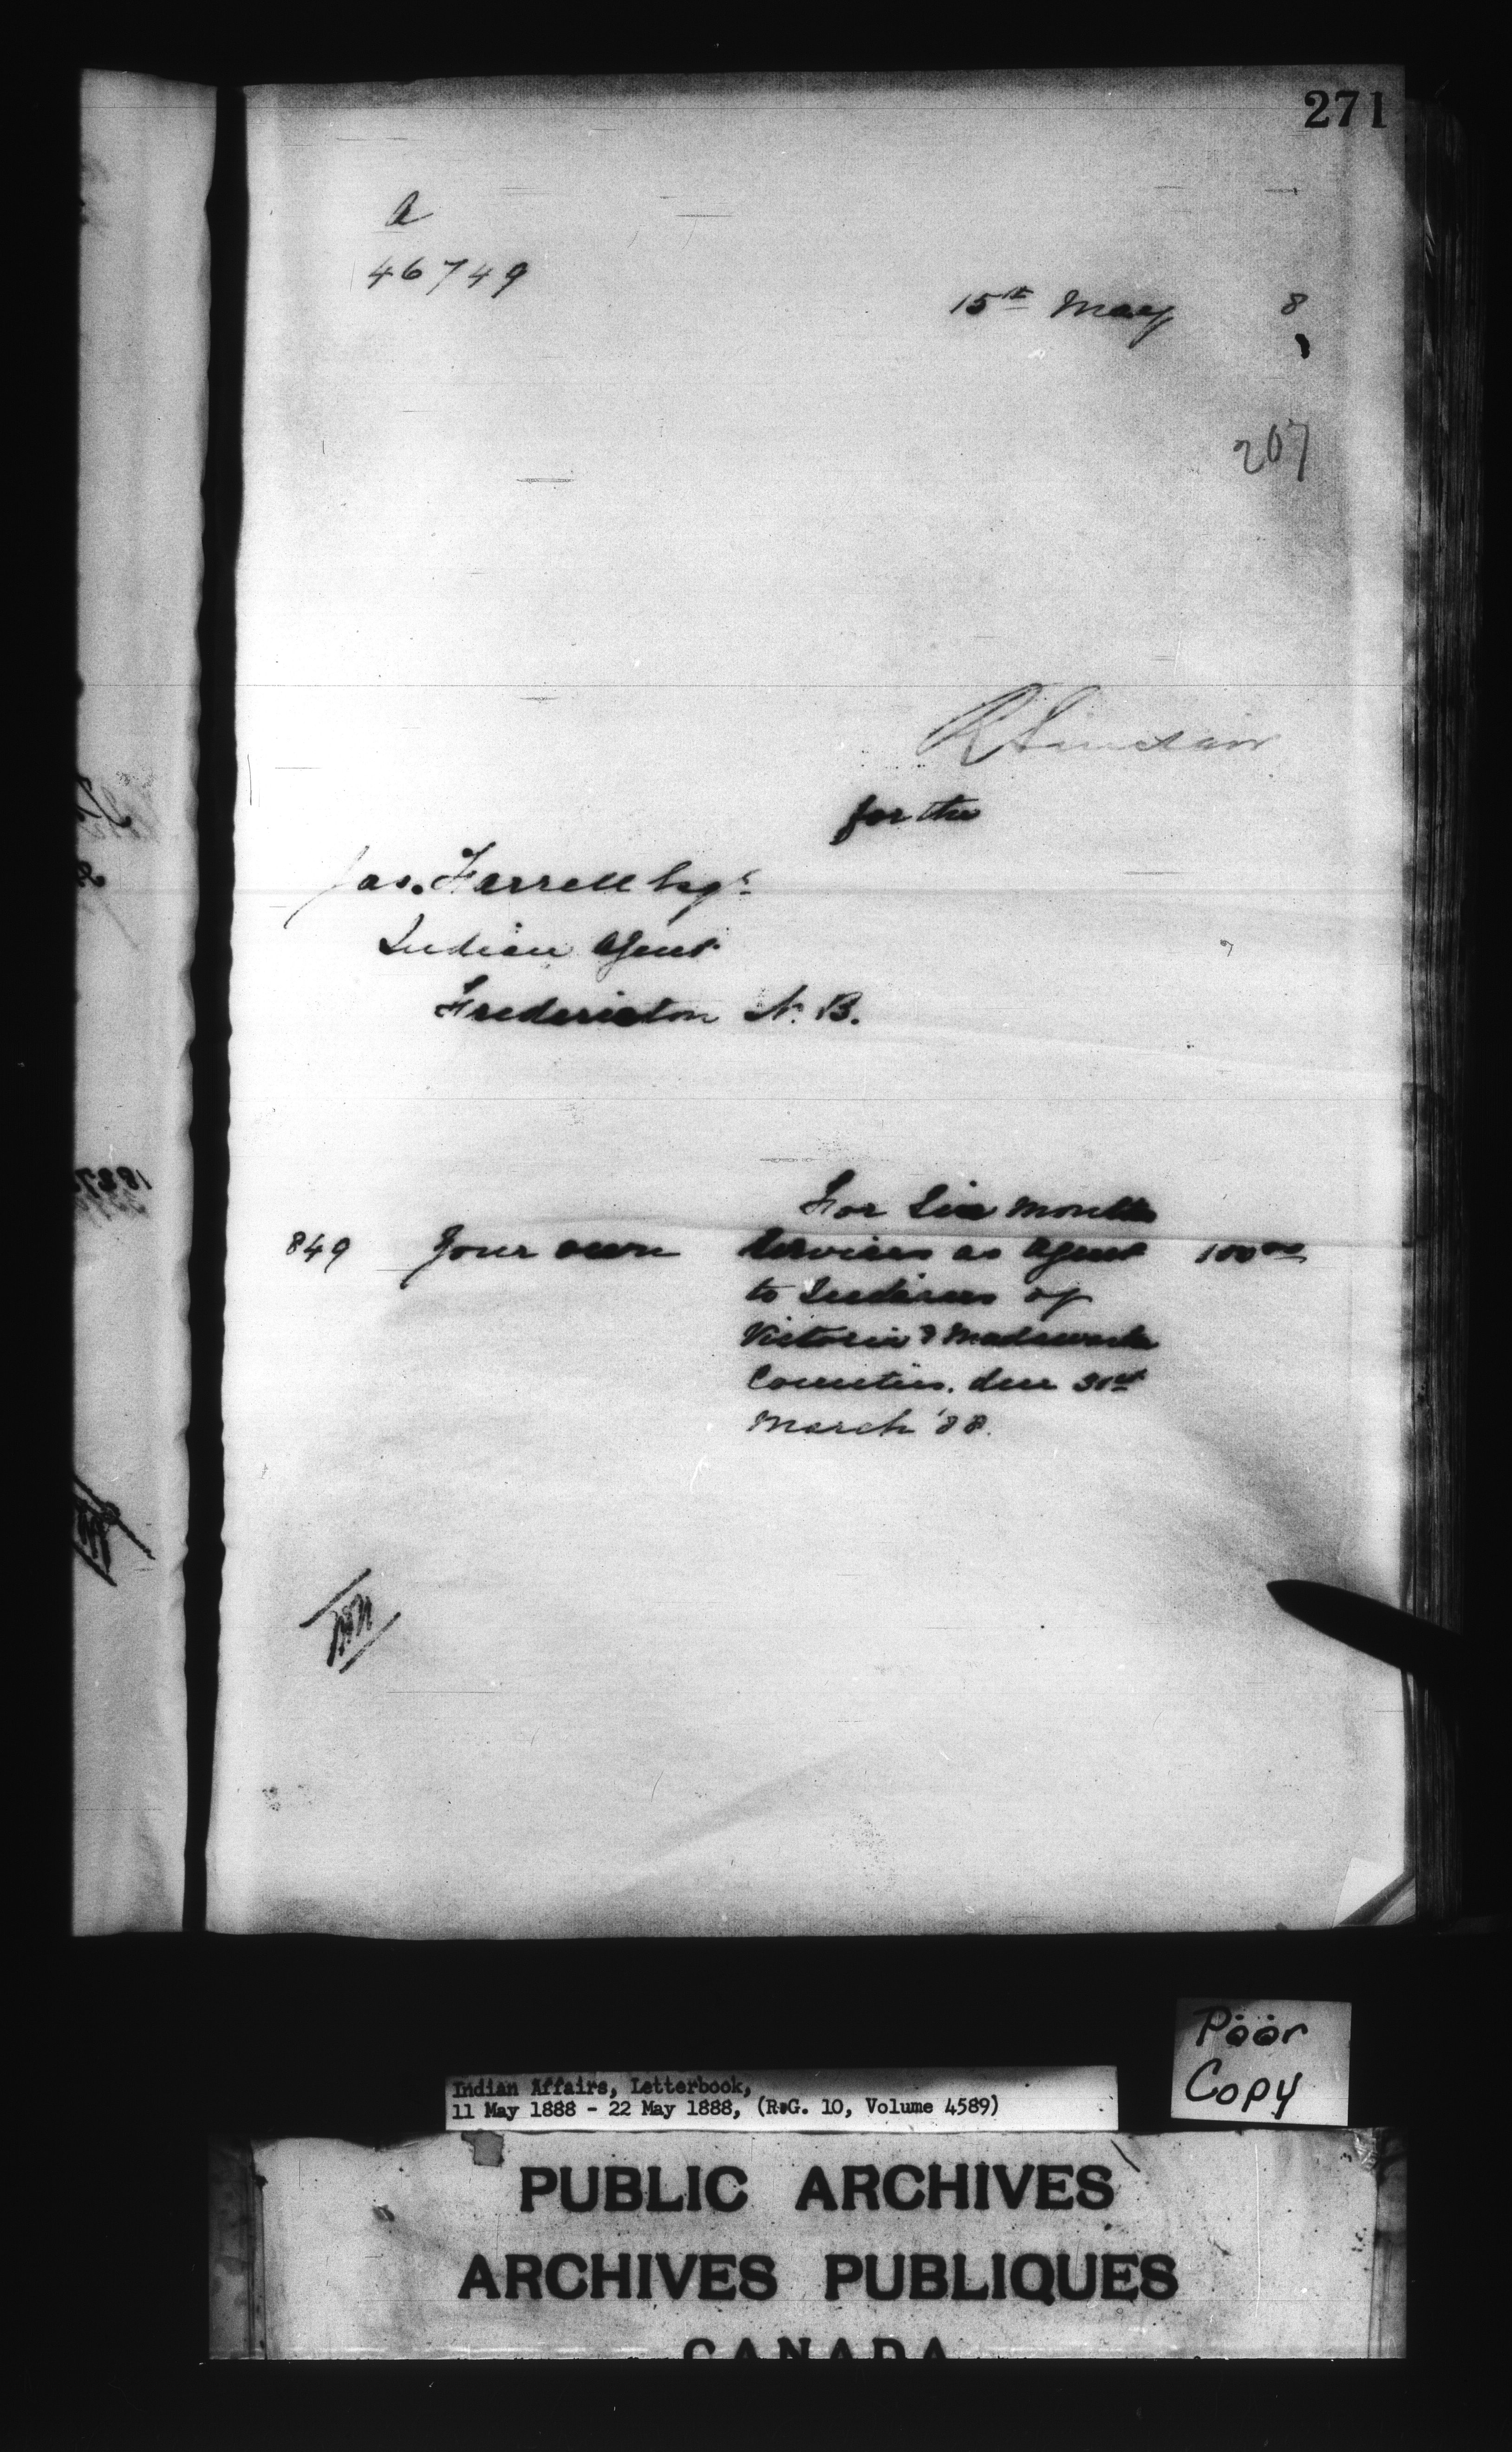 271
A
46749
15th May 8
207
R Sinclair
for the
Jas. Farrell Esqr
Indian Agent
Fredericton N. B.
For Six Months
849 Your own Services as Agent 100 00
to Indians of
Victoria & Madawaska
Counties. due 31st
March '88.
Poor
Copy
Indian Affairs, Letterbook,
11 May 1888 - 22 May 1888, (R.G. 10, Volume 4589)
PUBLIC ARCHIVES
ARCHIVES PUBLIQUES
CANADA